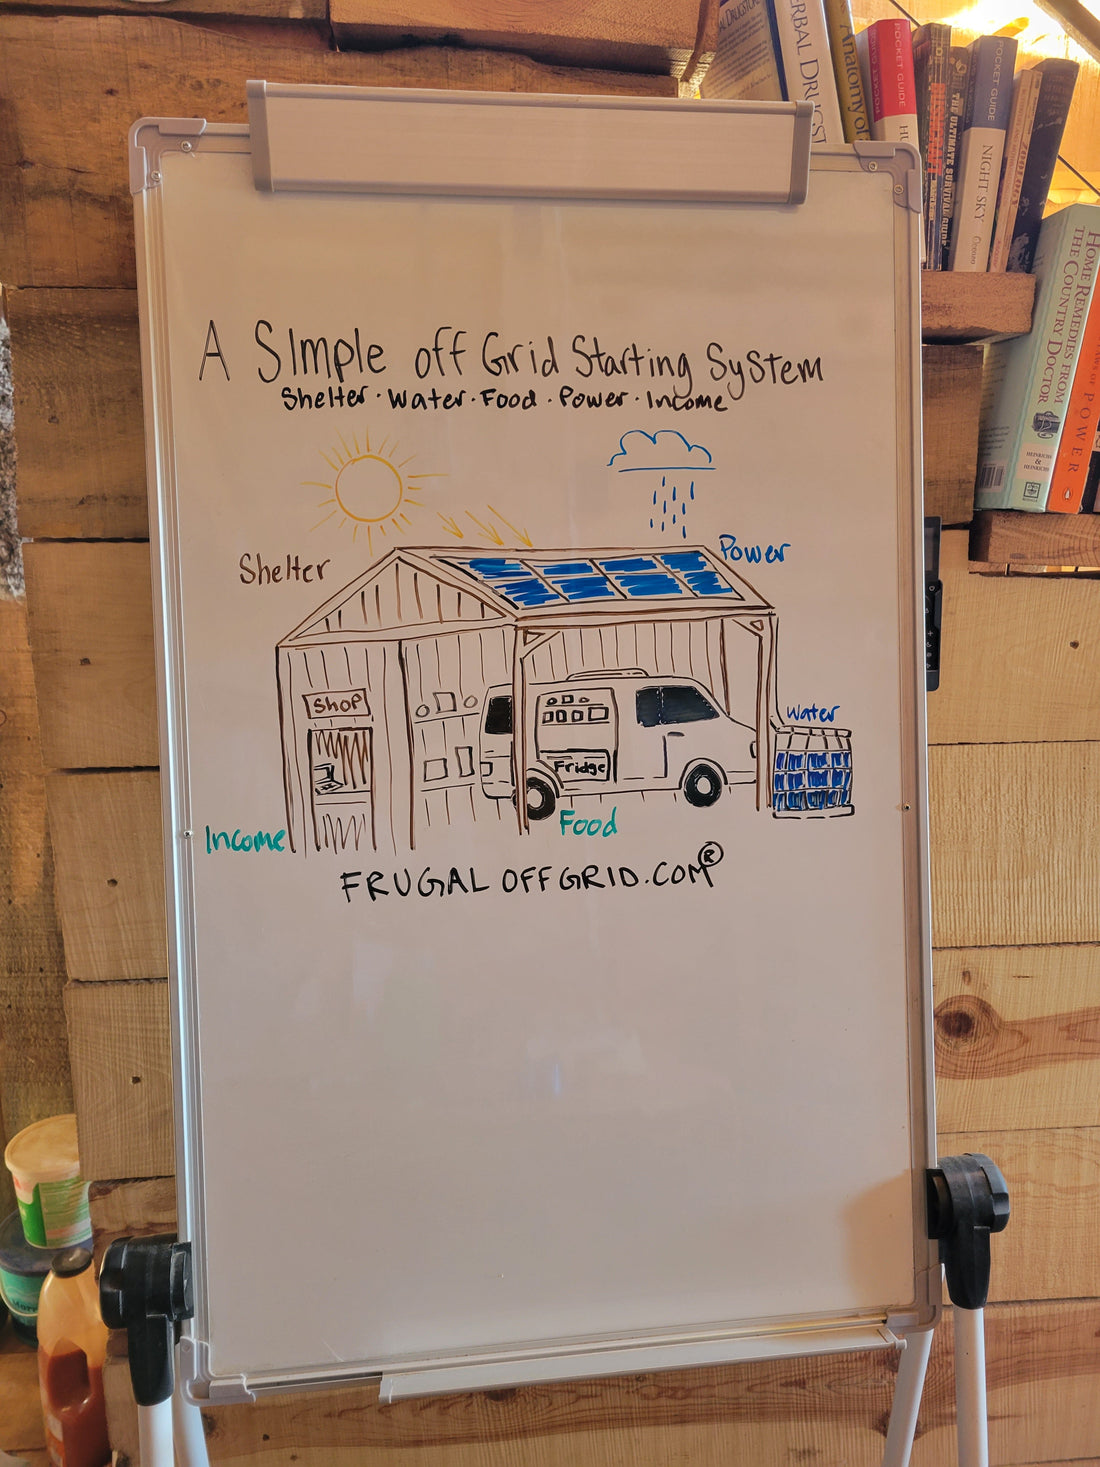 A SImple off Grid Starting System
Shelter · Water · Food · Power · Income
Shelter
Power
Shop
Water
Fridge
Income
Food
FRUGAL OFFGRID.COM®
HERBAL DRUGST
Anatomy of
POCKET GUIDE
HU
BUSHCRAFT
THE ULTIMATE SURVIVAL GUIDE
POCKET GUIDE
NIGHT SKY
HOME REMEDIES FROM
THE COUNTRY DOCTOR
HEINRICHS
&
HEINRICHS
OF POWER